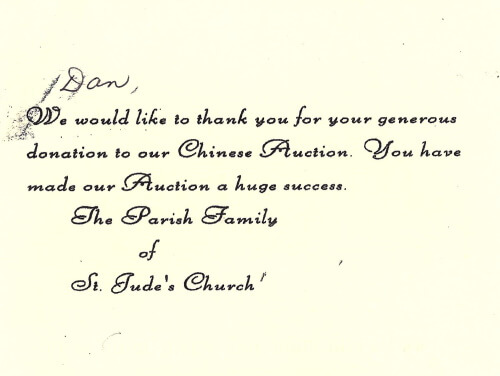 Dan,
We would like to thank you for your generous
donation to our Chinese Auction. You have
made our Auction a huge success.
The Parish Family
of
St. Jude's Church